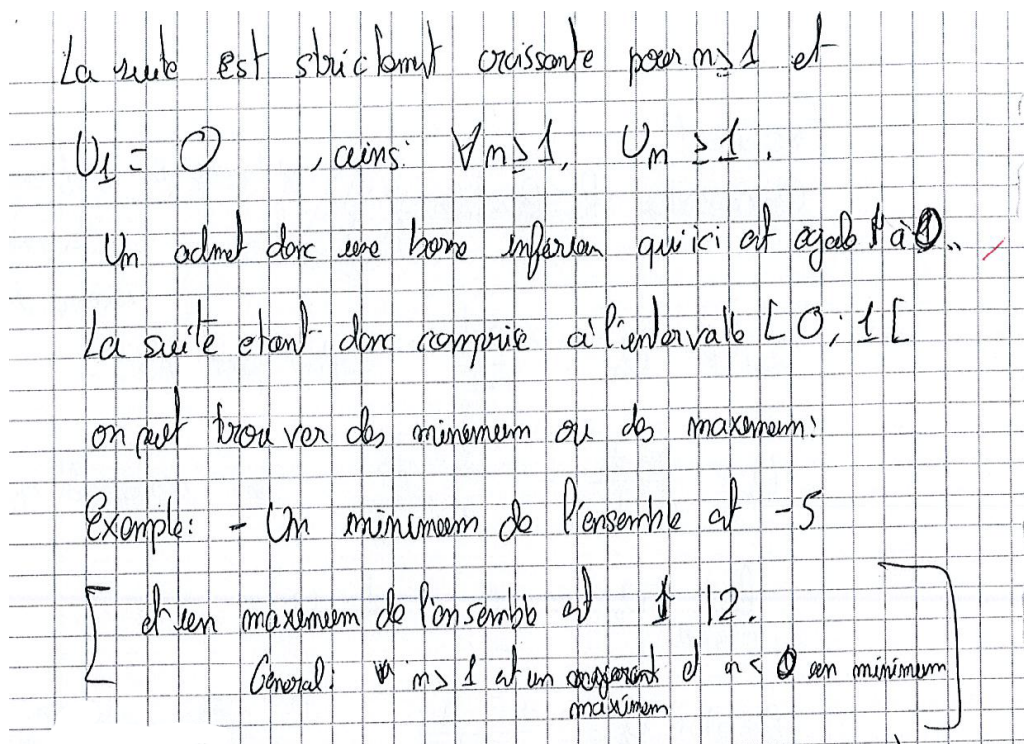 La suite est strictement croissante pour n ≥ 1 et
U1 = 0 , ainsi ∀n ≥ 1, Un ≥ 1.
Un admet donc une borne inférieur qui ici est egale à 0.
La suite etant donc comprise à l'intervalle [0; 1[
on peut trouver des minimum ou des maximum:
Exemple: - Un minimum de l'ensemble est -5
[ et un maximum de l'ensemble est 12. ]
General: n > 1 est un et n < 0 un minimum
maximum